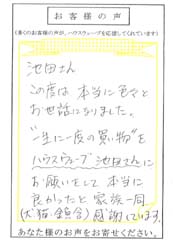 お客様の声
(多くのお客様の声が、ハウスウェーブを応援してくれています)
池田さん
この度は本当に色々と
お世話になりました。
"一生に一度の買い物"を
ハウスウェーブ池田さんに
お願いをして本当に
良かったと家族一同
(犬・猫・含む)感謝しています。
あなた様のお声をお寄せください。